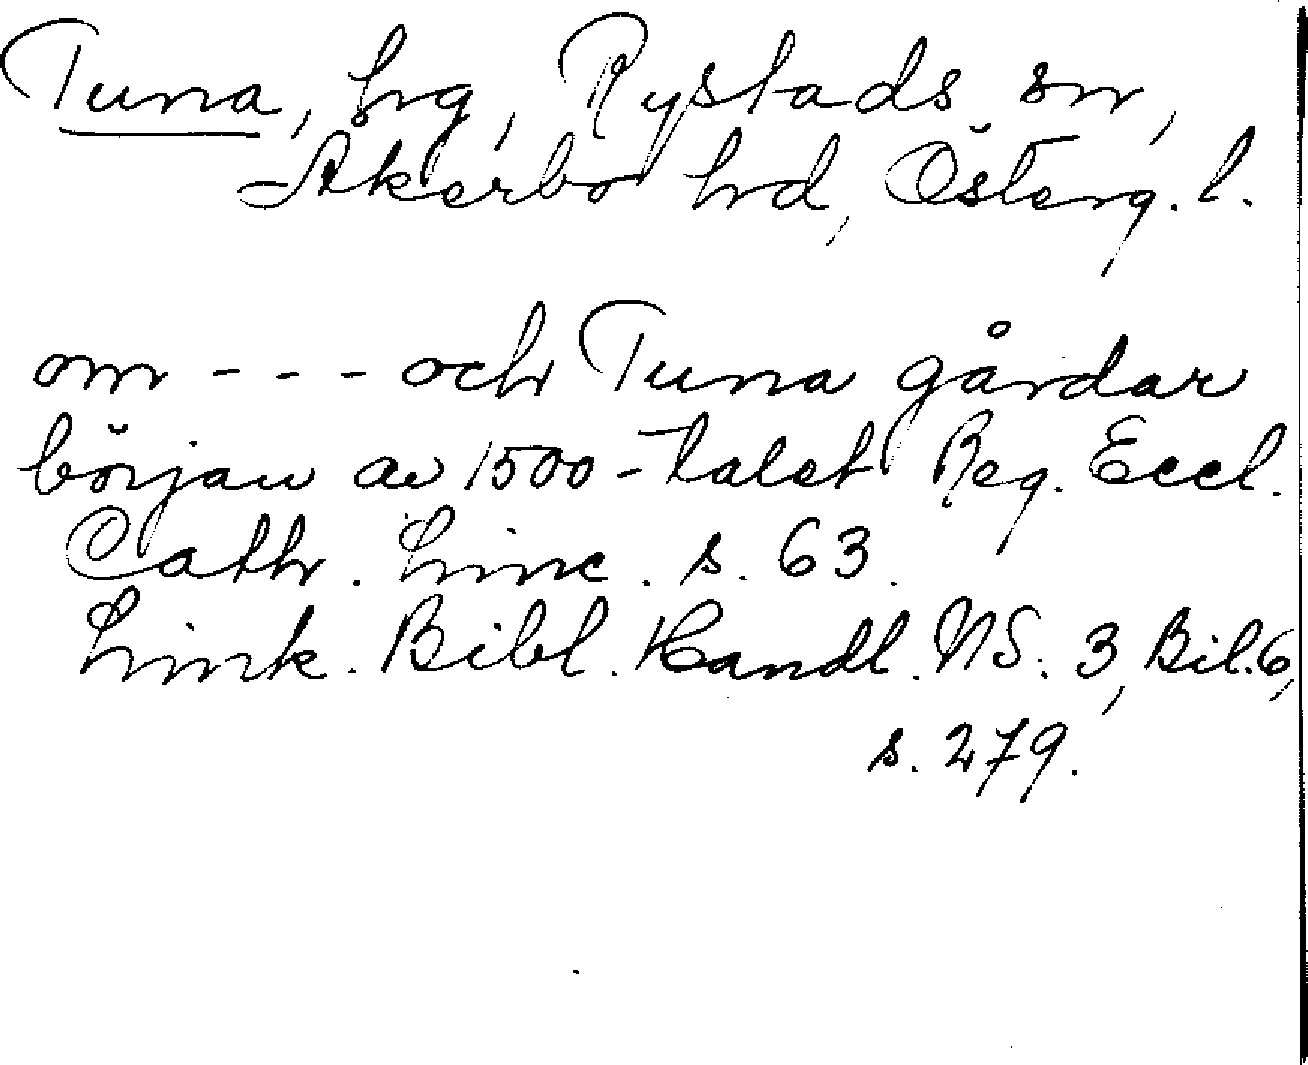 Tuna, hg, Rystads sn,
Åkerbo hd, Österg. l.
om - - - och Tuna gårdar
början av 1500-talet Reg. Eccl.
Cath. Linc. s. 63.
Link. Bibl. Handl. NS. 3, Bil. 6,
s. 279.